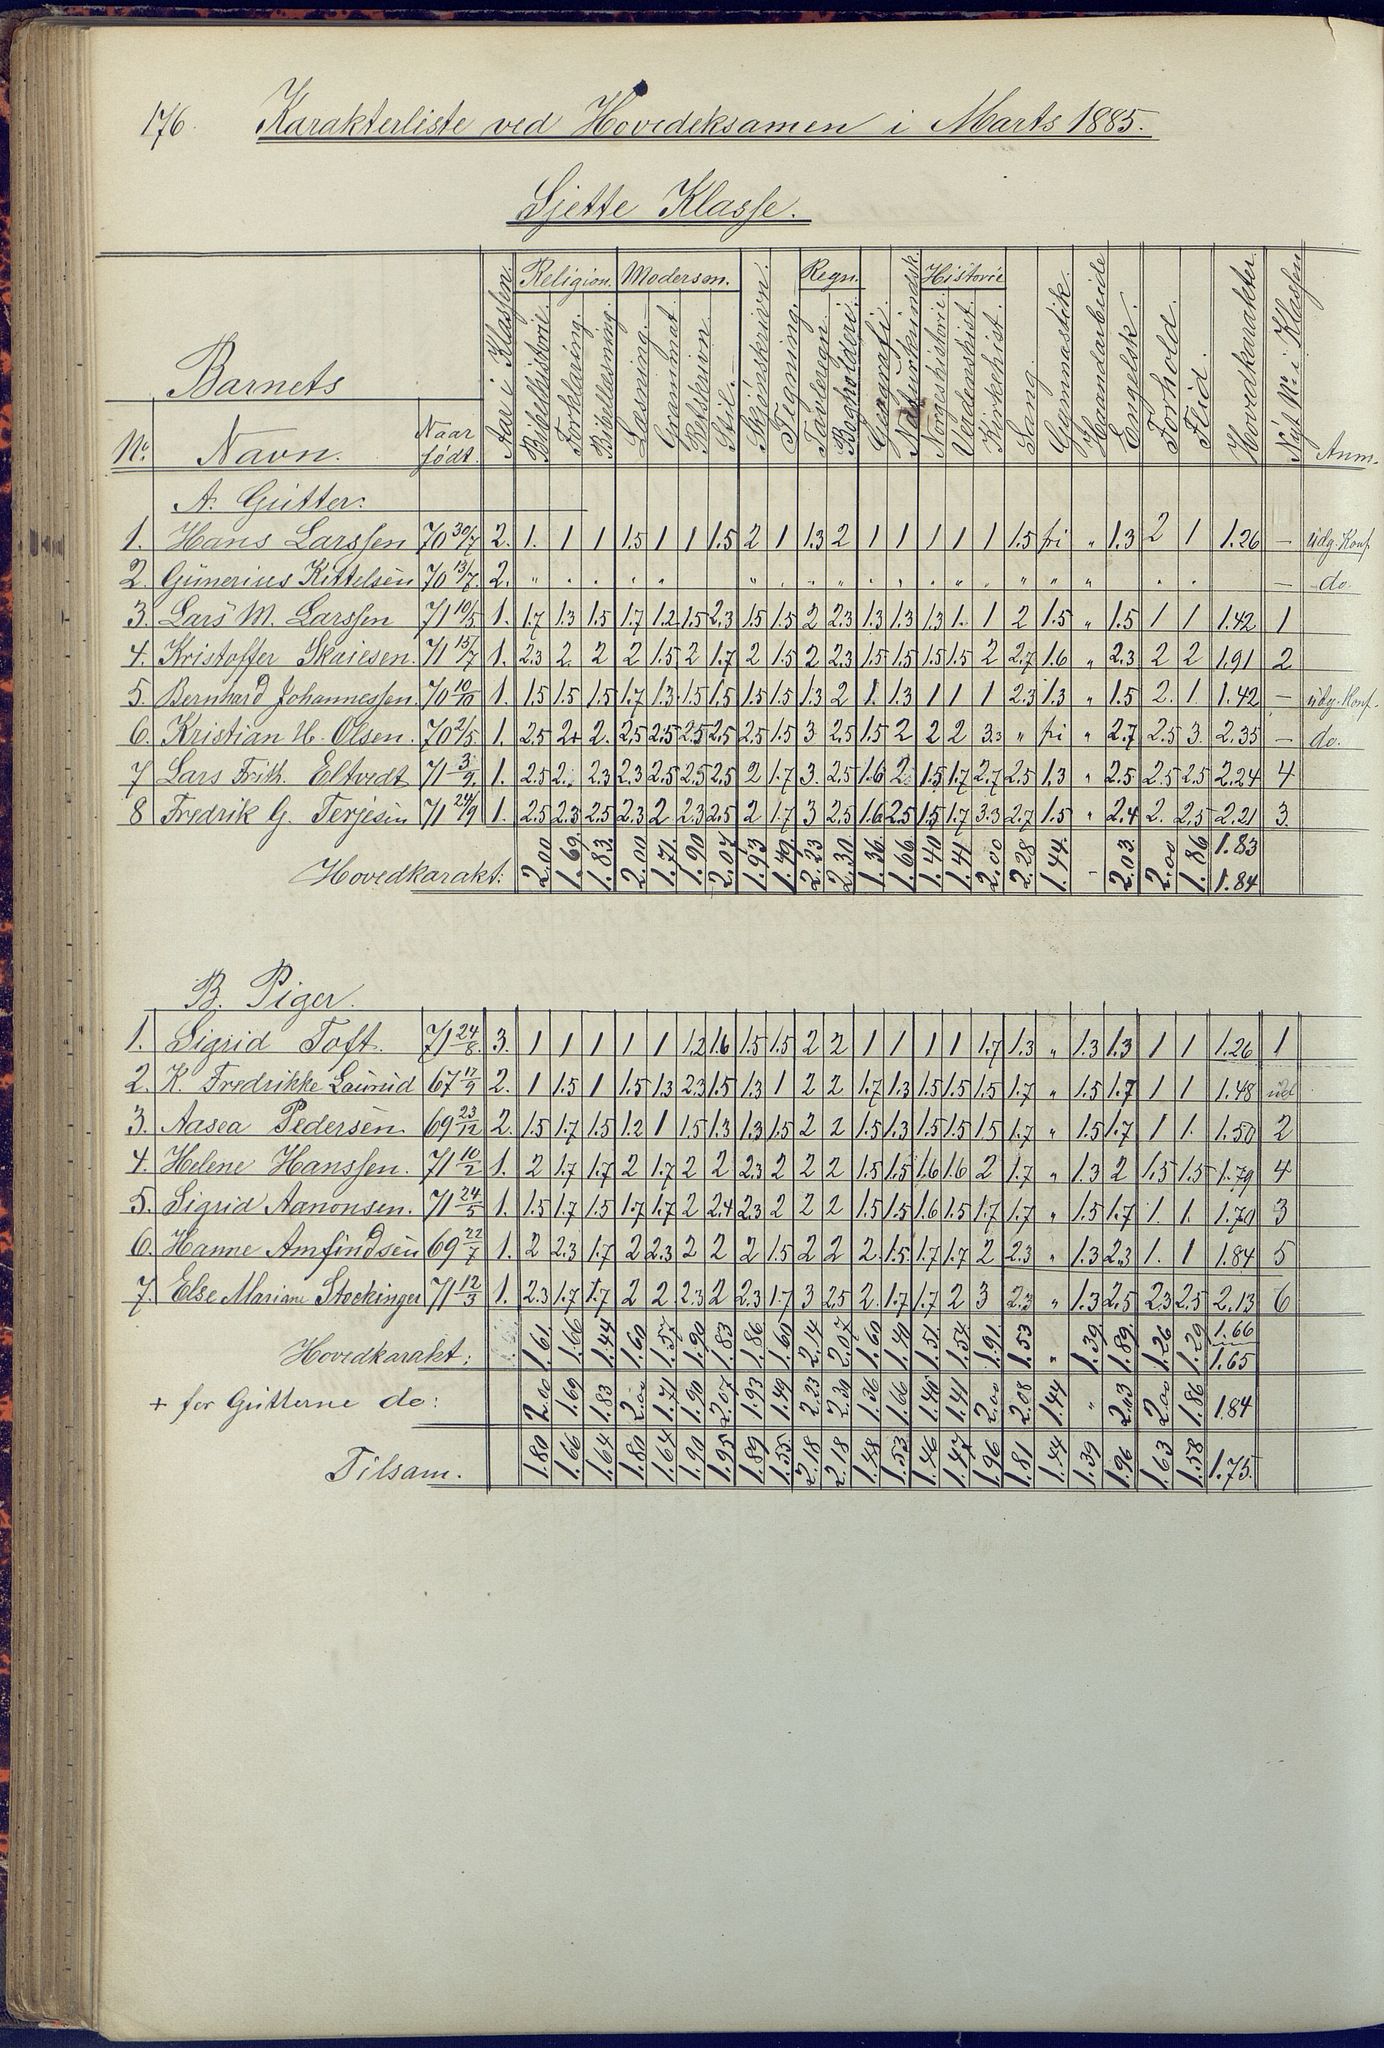 176. Karakterliste ved Hovedeksamen i Marts 1885.
Sjette Klasse.
Barnets
No. Navn. Naar født. Aar i Klassen. Religion. Bibelhistorie. Forklaring. Bibellæsning. Modersm. Læsning. Grammat. Retskrivn. Stil. Skjønskrivn. Tegning. Regn. Tavleregn. Bogholderi. Geografi. Naturkundsk. Historie Norgeshistorie Verdenshist. Kirkehist. Sang. Gymnastik. Haandarbeide Engelsk. Forhold. Flid. Hovedkarakter. Nyt No. i Klassen Anm.
A. Gutter.
1. Hans Larssen 70 30/7 2. 1. 1 1 1.5 1 1 1.5 2 1 1.3 2 1 1 1 1 1 1.5 fri " 1.3 2 1 1.26 — udg. Konf.
2. Gunerius Kittelsen 70 13/7. 2. " " " " " " " " " " " " " " " " " " " " " — do
3. Lars M. Larssen 71 10/5 1. 1.7 1.3 1.5 1.7 1.2 1.5 2.3 1.5 1.5 2 2.3 1.3 1.3 1.3 1. 1 2 1.5 " 1.5 1 1 1.42 1
4. Kristoffer Skaiesen. 71 15/7 1. 2.3 2. 2 2 1.5 2 1.7 2 1.5 2 2.3 1.5 1.5 1.5 1.5 2 2.7 1.6 " 2.3 2 2 1.91 2
5. Bernhard Johannessen 70 10/10 1. 1.5 1.5 1.5 1.7 1.3 1.5 1.5 1.5 1.5 1.3 2 1. 1.3 1 1 1 2.3 1.3 " 1.5 2. 1. 1.42 — udg. Konf.
6. Kristian H. Olsen. 70 2/5 1. 2.5 2+ 2. 2.5 2.5 2.5 2.5 2.5 1.5 3 2.5 1.5 2 2 2 3.3 " fri " 2.7 2.5 3. 2.35 — do.
7 Lars Frith. Eltvedt 71 3/2. 1. 2.5 2. 2.3 2.3 2.5 2.5 2.5 2 1.7 3. 2.5 1.6 2 1.5 1.7 2.7 2.5 1.3 " 2.5 2.5 2.5 2.24 4
8 Fredrik G. Terjesen 71 24/9 1. 2.5 2.3 2.5 2.3 2 2.3 2.5 2 1.7 3 2.5 1.6 2.5 1.5 1.7 3.3 2.7 1.5 " 2.4 2. 2.5 2.21 3.
Hovedkarakt: 2.00 1.69. 1.83. 2.00 1.71. 1.90 2.07 1.93 1.49. 2.23 2.30. 1.36. 1.66. 1.40 1.41 2.00 2.28 1.44. - 2.03. 2.00 1.86 1.83
1.84
B. Piger.
1. Sigrid Toft. 71 24/8. 3. 1 1 1 1 1 1.2 1.6 1.5 1.5 2 2 1 1 1 1 1.7 1.3 " 1.3 1.3 1 1 1.26 1
2. K. Fredrikke Laurud 67 17/9 2. 1 1.5 1 1.5 1.3 2.3 1.5 1.3 1 2 2 1.7 1.3 1.5 1.5 1.5 1.7 " 1.5 1.7 1 1 1.48
3. Aasea Pedersen. 69 23/12 2. 1.5 1.7 1.5 1.2 1 1.5 1.3 1.3 1.5 2 2 1.5 1.3 1.5 1.5 1.5 1.7 " 1.5 1.7 1 1. 1.50 2
4. Helene Hanssen. 71 10/2 1. 2 1.7 1.7 2 1.7 2 2 2.3 2 2 2 1.5 1.5 1.6 1.6 2 1.7 " 1.3 2 1.5 1.5 1.79 4
5. Sigrid Aanonsen. 71 24/5 1. 1.5 1.7 1.5 1.7 1.7 2 2.4 2.3 2 2 2 1.5 1.5 1.6 1.5 1.7 1.7 " 1.5 1.7 1. 1. 1.70 3
6. Hanne Amfindsen 69 22/7 1. 2 2.3 1.7 2 2.3 2 2 2 1.5 2 2 2. 1.5 1.7 1.7 2 2.3 " 1.3 2.3 1. 1 1.84 5
7. Else Mariane Stockinger 71 12/3 1. 2.3 1.7 1.7 2 2 2.3 2 2.3 1.7 3 2.5 2. 1.7 1.7 2 3 2.3 " 1.3 2.5 2.3 2.5 2.13 6
Hovedkarakt: 1.61. 1.66 1.44 1.60 1.57 1.90 1.83 1.86 1.60 2.14 2.07 1.60 1.40 1.51 1.54 1.91. 1.53 " 1.39 1.89. 1.26 1.29 1.66
1.65
+ for Gutterne do: 2.00 1.69 1.83 2.00 1.71 1.90 2.07 1.93 1.49 2.23 2.30 1.36 1.66 1.40 1.41 2.00 2.08 1.44 " 2.03 2.00 1.86 1.84
Tilsam. 1.80 1.66 1.64 1.80 1.64 1.90 1.95 1.89 1.55 2.18 2.18 1.48 1.53 1.46 1.47 1.96 1.81 1.44 1.39 1.96 1.63 1.58 1.75.